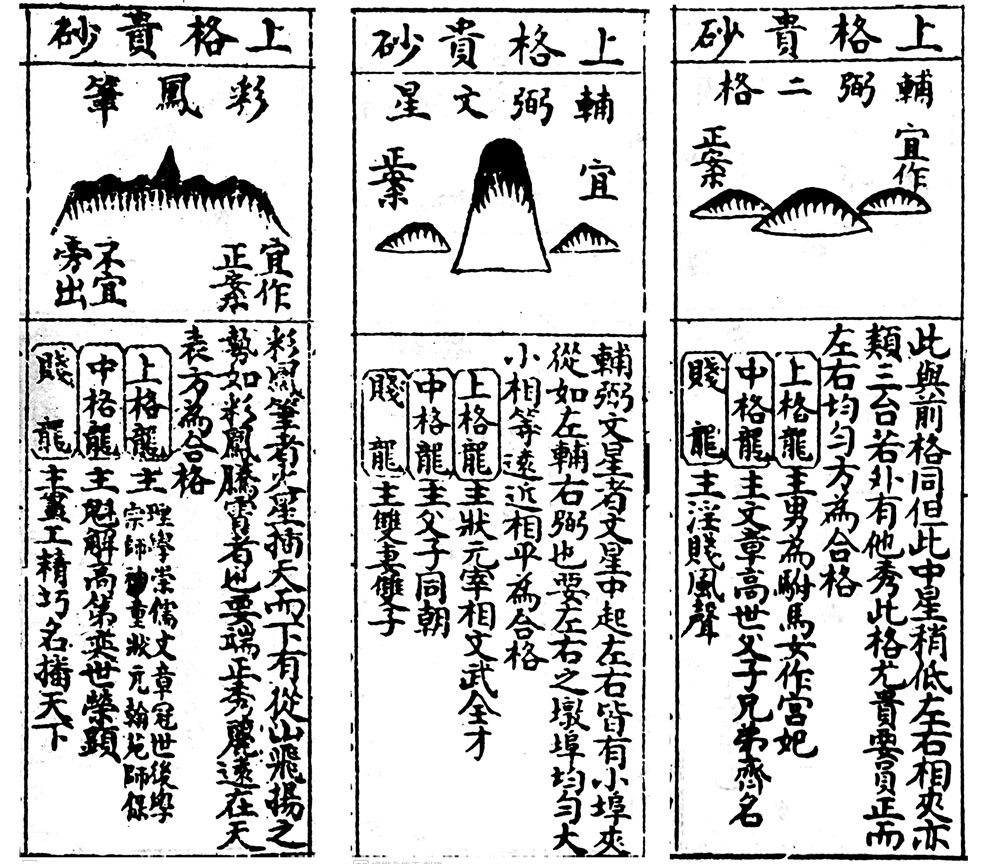 上格貴砂
輔弼二格
宜作
正案
此與前格同但此中星稍低左右相夾亦
類三台若外有他秀此格尤貴要員正而
左右均勻方為合格
上格龍主男為駙馬女作宮妃
中格龍主文章高世父子兄弟齊名
賤龍主淫賤風聲
上格貴砂
輔弼文星
宜
正案
輔弼文星者文星中起左右皆有小埠夾
從如左輔右弼也要左右之墩埠均勻大
小相等遠近相平為合格
上格龍主狀元宰相文武全才
中格龍主父子同朝
賤龍主雙妻雙子
上格貴砂
彩鳳筆
宜作
正案
不宜
旁出
彩鳳筆者火星插天而下有從山飛揚之
勢如彩鳳騰霄者也要端正秀麗遠在天
表方為合格
上格龍主理學崇儒文章冠世後學
宗師神童狀元翰苑師保
中格龍主魁解高第奕世榮顯
賤龍主畫工精巧名播天下